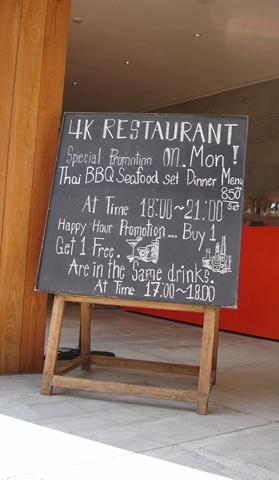 4K RESTAURANT
Special Promotion on. Mon!
Thai BBQ Seafood set Dinner Menu
850
Set
At Time 18:00~21:00
Happy Hour Promotion... Buy 1
Get 1 Free.
Are in the Same drinks.
At Time 17.00~18.00